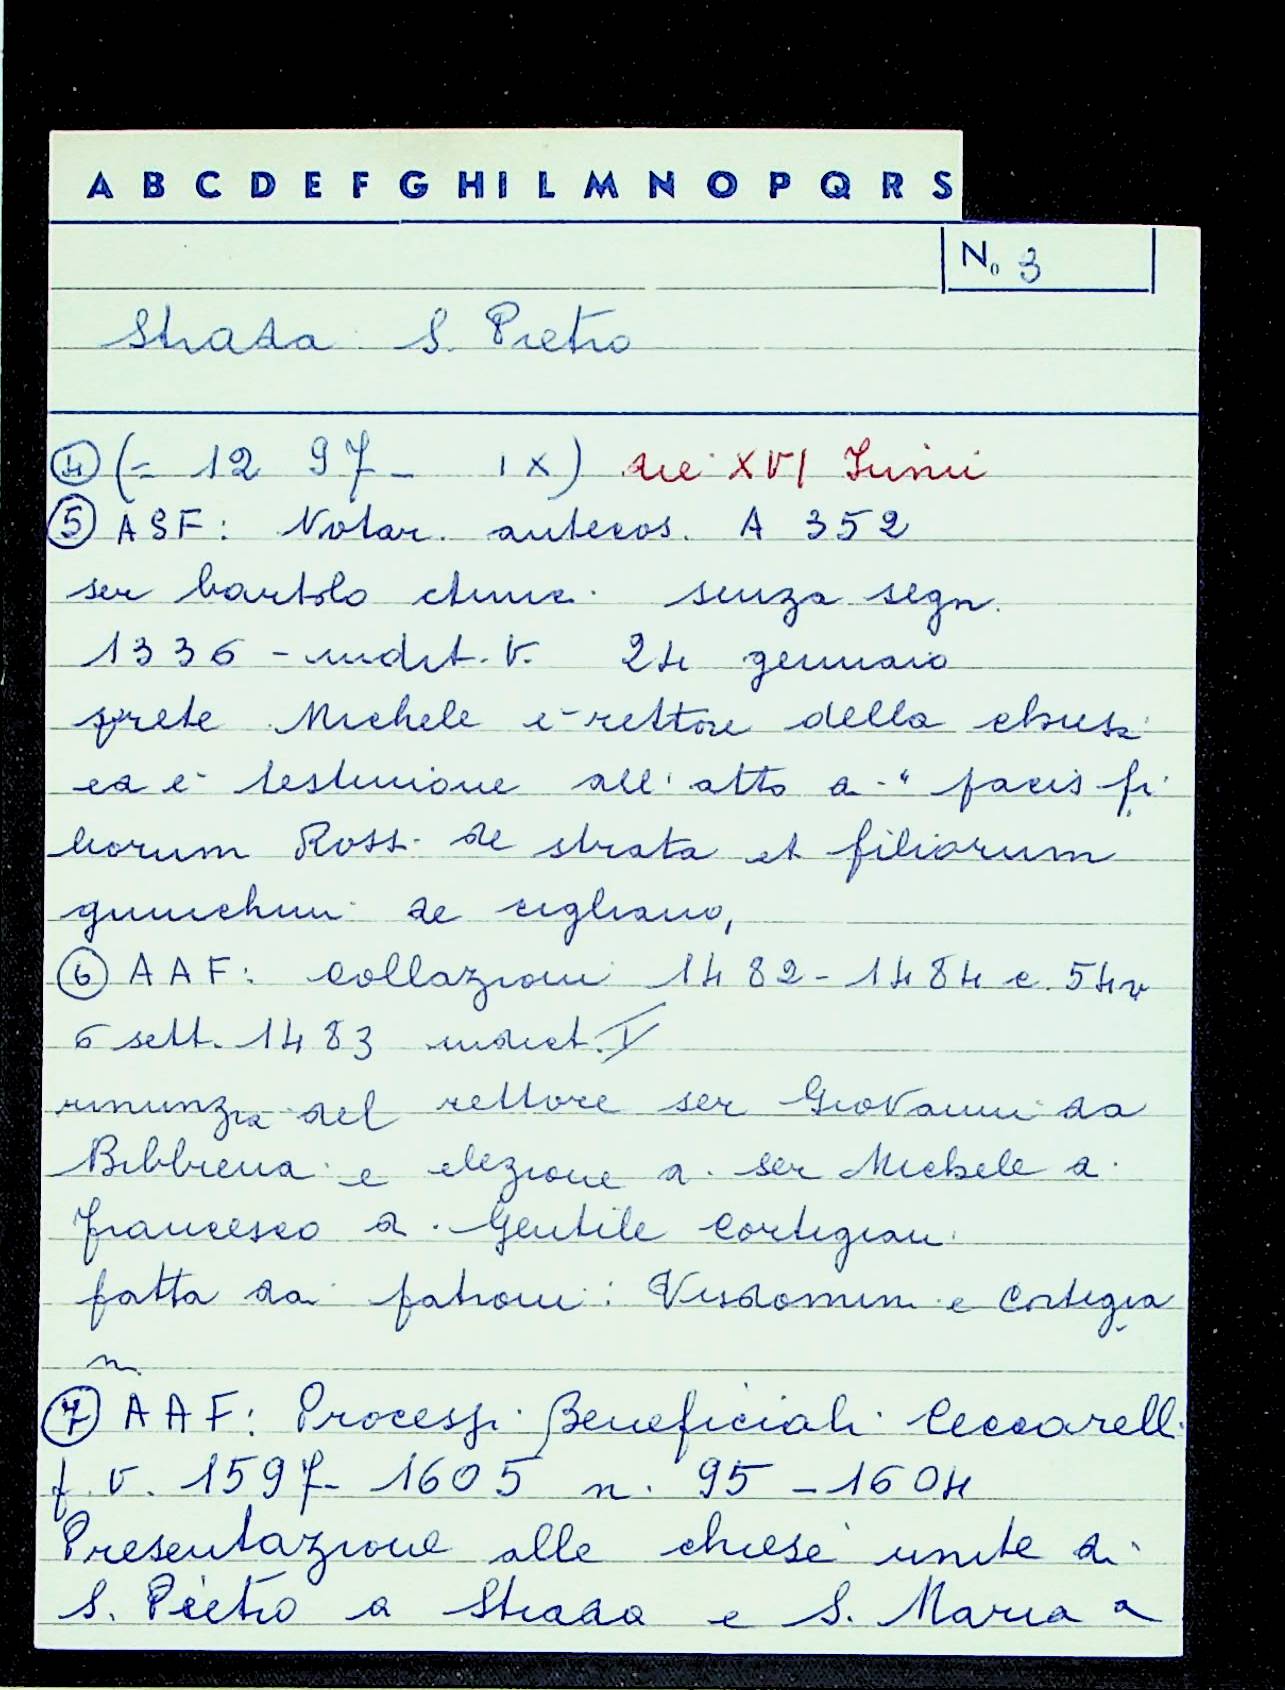 A B C D E F G H I L M N O P Q R S
No 3
Strada S. Pietro
④ (= 1297 - IX) die XVI Junii
⑤ ASF: Notar. antecos. A 352
ser bartolo senza segn.
1336 - indit. V. 24 gennaio
prete Michele è rettore della chiesa
ed è testimone all'atto di " pacis fi
liorum Rossi de strata et filiorum
de cigliano,
⑥ AAF: Collazioni 1482-1484 c. 54v
6 sett. 1483 indict. V
rinunzia del rettore ser Giovanni da
Bibbiena e elezione di ser Michele di
Francesco di Gentile Cortigiani
fatta dai patroni: Visdomini e Cortigia
ni
⑦ AAF: Processi Beneficiali Ceccarelli
f. V. 1597-1605 n. 95 - 1604
Presentazione alle chiese unite di
S. Pietro a Strada e S. Maria a